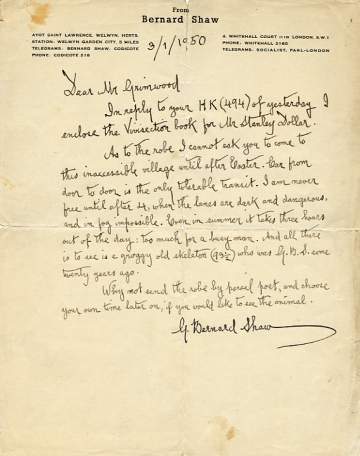 From
Bernard Shaw
AYOT SAINT LAWRENCE, WELWYN, HERTS.
STATION: WELWYN GARDEN CITY, 5 MILES
TELEGRAMS: BERNARD SHAW, CODICOTE
PHONE: CODICOTE 218
4 WHITEHALL COURT (116) LONDON, S.W.1
PHONE: WHITEHALL 3160
TELEGRAMS: SOCIALIST, PARL-LONDON
9/1/1950
Dear Mr Grimwood
In reply to your HK (494) of yesterday I
enclose the Vivisection book for Mr Stanley Dollar.
As to the robe I cannot ask you to come to
this inaccessible village until after Easter. Car from
door to door is the only tolerable transit. I am never
free until after 4, when the lanes are dark and dangerous,
and in fog impossible. Even in summer it takes three hours
out of the day: too much for a busy man. And all there
is to see is a groggy old skeleton (93½) who was G.B.S. some
twenty years ago.
Why not send the robe by parcel post, and choose
your own time later on, if you would like to see the animal.
G. Bernard Shaw